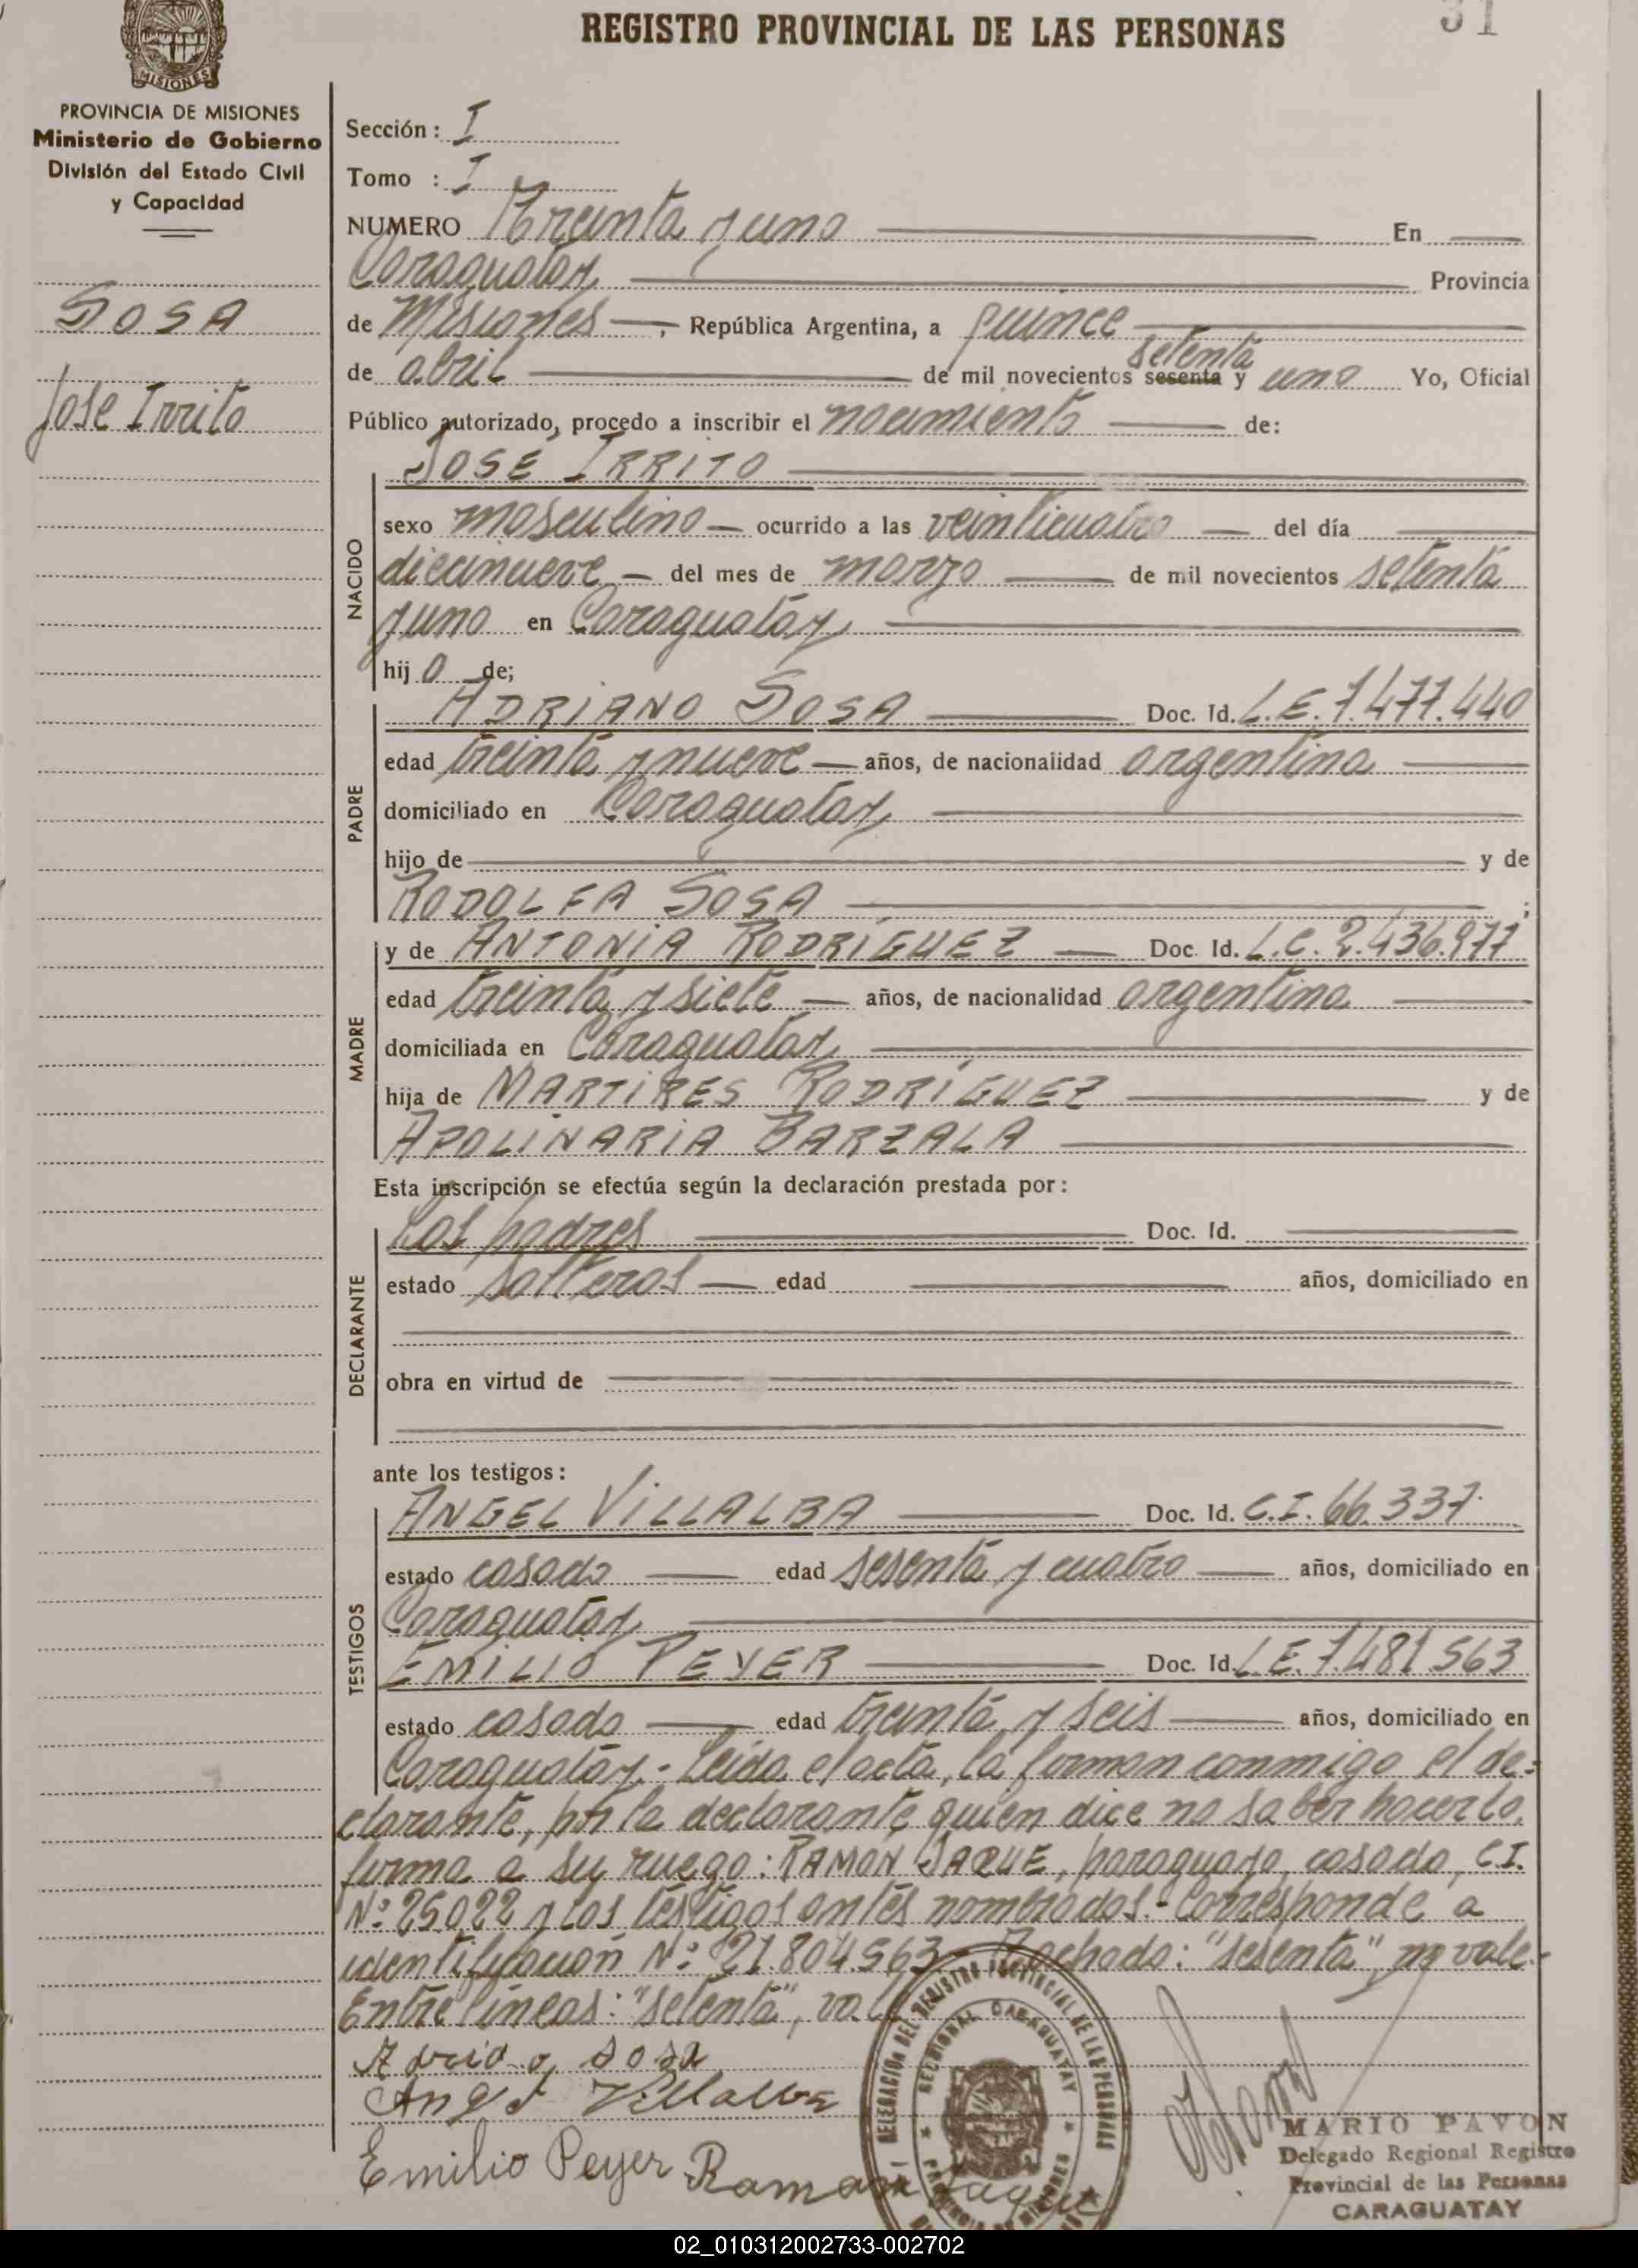 REGISTRO PROVINCIAL DE LAS PERSONAS
31
MISIONES
PROVINCIA DE MISIONES
Ministerio de Gobierno
División del Estado Civil
y Capacidad
SOSA
Jose Irrito
Sección: I
Tomo : I
NUMERO Treinta y uno En
Caraguatay Provincia
de Misiones, República Argentina, a quince
setenta
de abril de mil novecientos sesenta y uno Yo, Oficial
Público autorizado, procedo a inscribir el nacimiento de:
JOSE IRRITO
NACIDO
sexo masculino ocurrido a las veinticuatro del día
diecinueve del mes de marzo de mil novecientos setenta
y uno en Caraguatay
hijo de;
PADRE
ADRIANO SOSA Doc. Id. L.E. 7.477.440
edad treinta y nueve años, de nacionalidad argentina
domiciliado en Caraguatay
hijo de y de
RODOLFA SOSA ;
MADRE
y de ANTONIA RODRÍGUEZ Doc. Id. L.C. 2.436.977
edad treinta y siete años, de nacionalidad argentina
domiciliada en Caraguatay
hija de MARTIRES RODRÍGUEZ y de
APOLINARIA BARZALA
Esta inscripción se efectúa según la declaración prestada por:
DECLARANTE
Los padres Doc. Id.
estado solteros edad años, domiciliado en
obra en virtud de
ante los testigos:
TESTIGOS
ANGEL VILLALBA Doc. Id. C.I. 66.337.
estado casado edad sesenta y cuatro años, domiciliado en
Caraguatay
EMILIO PEYER Doc. Id. L.E. 7.481.563
estado casado edad treinta y seis años, domiciliado en
Caraguatay.- Leída el acta, la firman conmigo el de-
clarante, por la declarante quien dice no saber hacerlo,
firma a su ruego: RAMON JAQUE, paraguayo, casado, C.I.
Nº 25022 y los testigos antes nombrados.- Corresponde a
identificación Nº: 21.804.563.- Tachado: "sesenta", no vale.-
Entre líneas: "setenta", vale
Adriano Sosa
Angel Villalba
Emilio Peyer Ramon Jaque
DELEGACION DEL REGISTRO PROVINCIAL DE LAS PERSONAS
REGIONAL CARAGUATAY
PROVINCIA DE MISIONES
MARIO PAVON
Delegado Regional Registro
Provincial de las Personas
CARAGUATAY
02_010312002733-002702